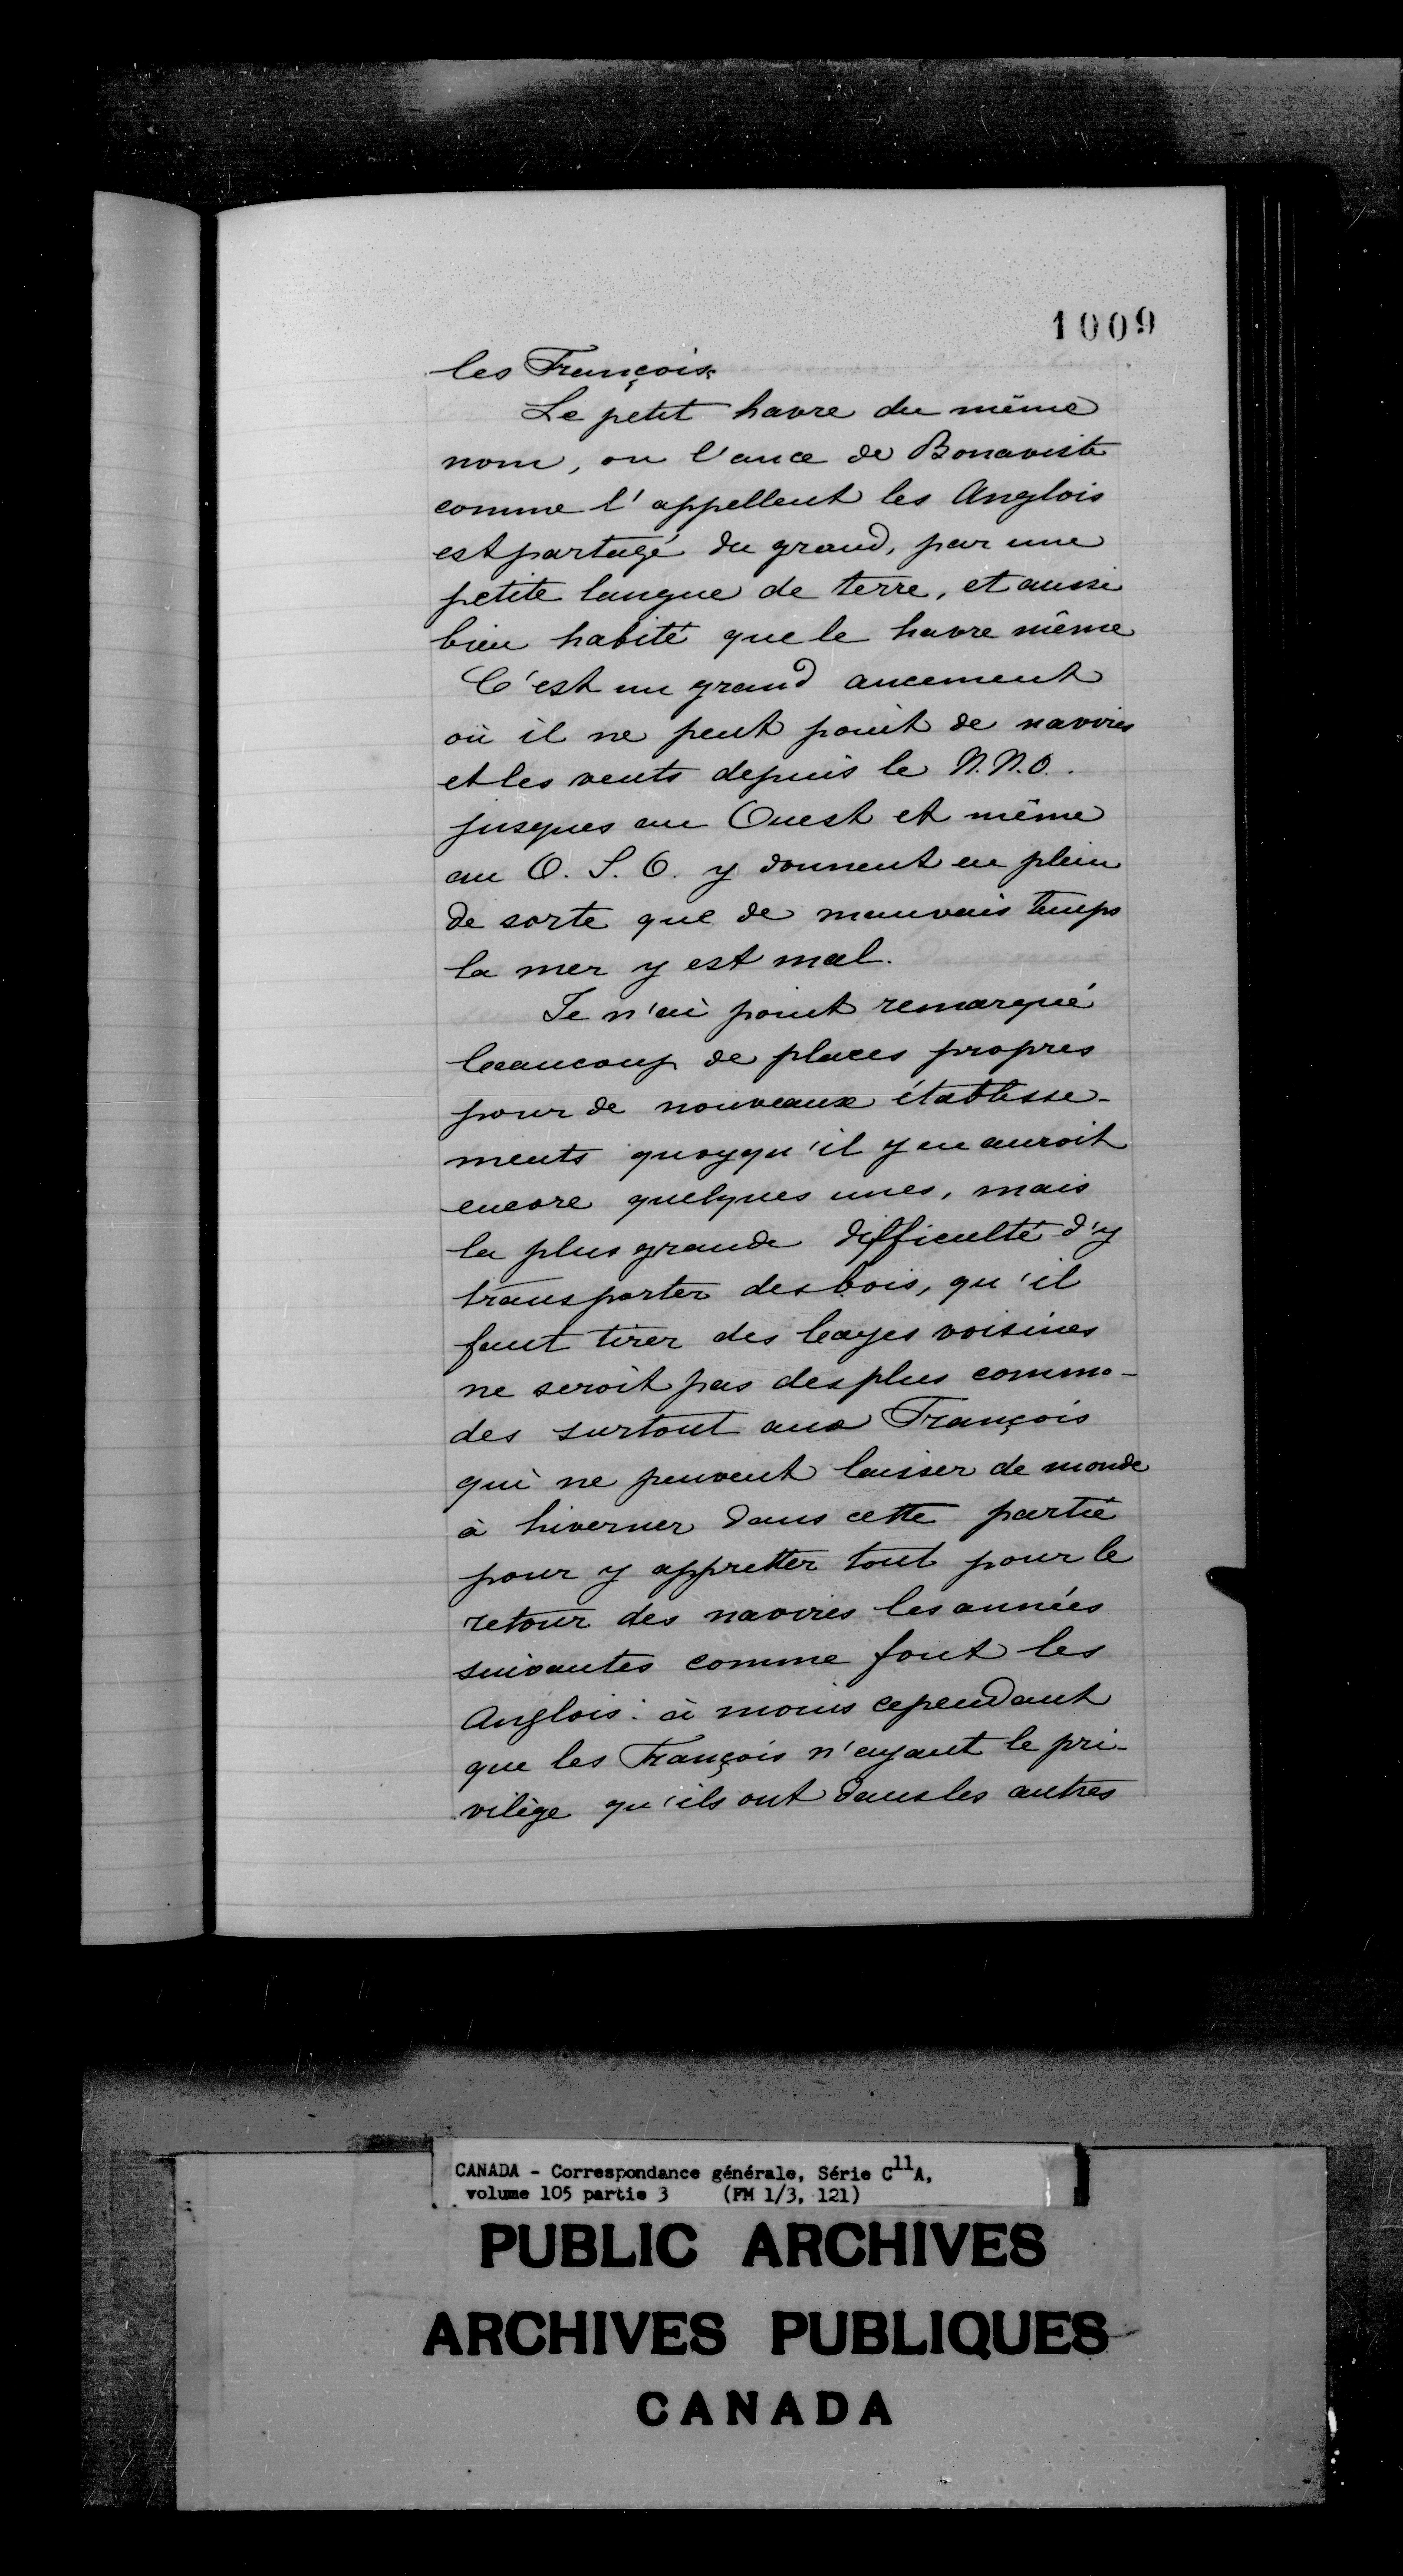 1009
les François.
Le petit havre du même
nom, ou l'ance de Bonaviste
comme l'appellent les Anglois
est partagé du grand, par une
petite langue de terre, et aussi
bien habité que le havre même
C'est un grand ancement
où il ne peut point de navires
et les vents depuis le N.N.O.
jusques au Ouest et même
au O. S. O. y donnent en plein
de sorte que de mauvais temps
la mer y est mal.
Je n'ai point remarqué
beaucoup de places propres
pour de nouveaux établisse-
ments quoyqu'il y en auroit
encore quelques unes, mais
la plus grande difficulté d'y
transporter des bois, qu'il
faut tirer des bayes voisines
ne seroit pas des plus commo-
des surtout aux François
qui ne peuvent laisser de monde
à hiverner dans cette partie
pour y appretter tout pour le
retour des navires les années
suivantes comme font les
Anglois: à moins cependant
que les François n'ayant le pri-
vilège qu'ils ont dans les autres
CANADA - Correspondance générale, Série C11A,
volume 105 partie 3 (FM 1/3, 121)
PUBLIC ARCHIVES
ARCHIVES PUBLIQUES
CANADA